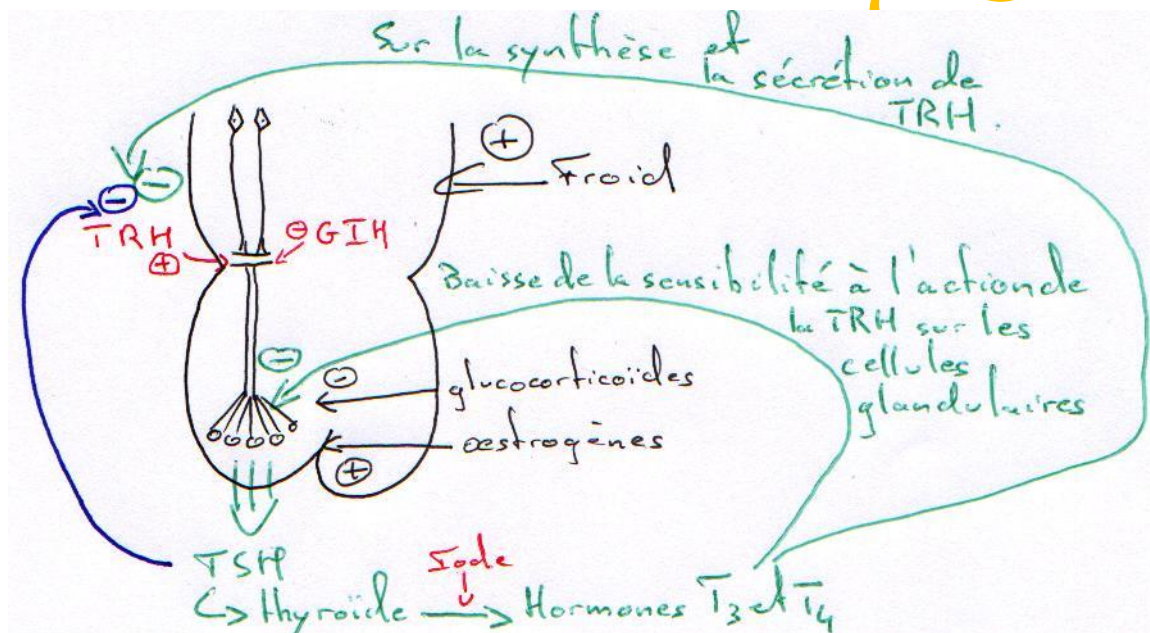 Sur la synthèse et
la sécrétion de
TRH.
⊕
Froid
⊖ ⊖
TRH ⊕
⊖ GIH
Baisse de la sensibilité à l'action de
la TRH sur les
cellules
glandulaires
⊖
⊖ glucocorticoïdes
⊕ œstrogènes
TSH
Iode
↳ thyroïde → Hormones T3 et T4